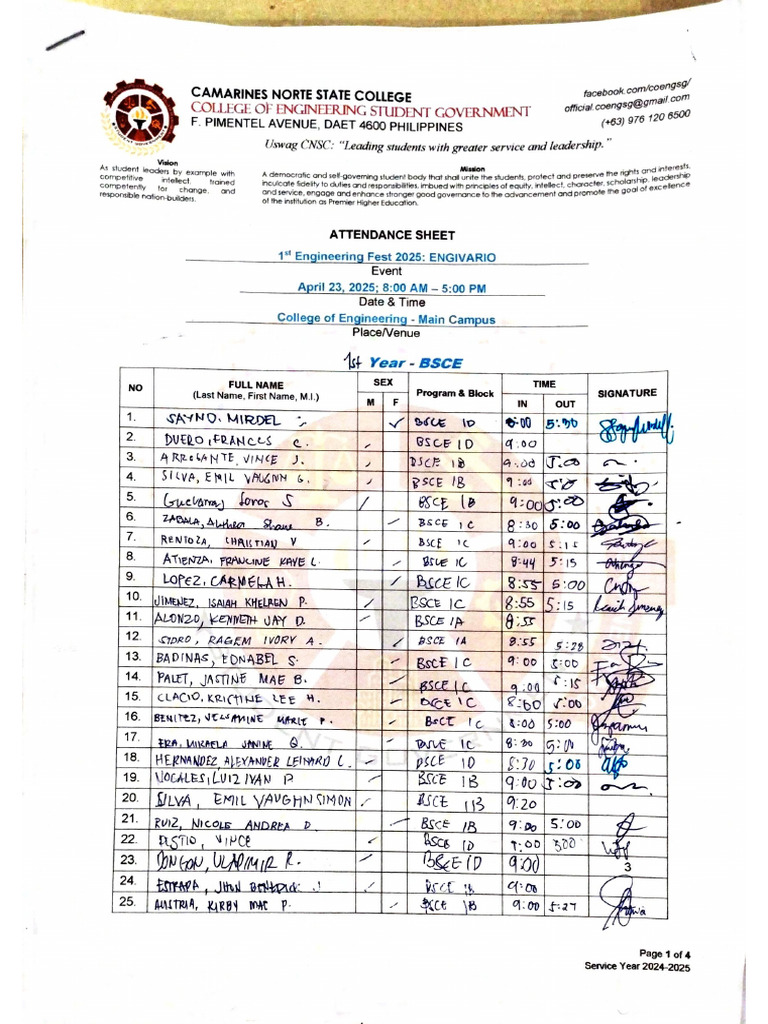 CAMARINES NORTE STATE COLLEGE
COLLEGE OF ENGINEERING STUDENT GOVERNMENT
F. PIMENTEL AVENUE, DAET 4600 PHILIPPINES
facebook.com/coengsg/
official.coengsg@gmail.com
(+63) 976 120 6500
Uswag CNSC: “Leading students with greater service and leadership.”
Vision
As student leaders by example with
competitive intellect, trained
competently for change, and
responsible nation-builders.
Mission
A democratic and self-governing student body that shall unite the students, protect and preserve the rights and interests,
inculcate fidelity to duties and responsibilities, imbued with principles of equity, intellect, character, scholarship, leadership
and service, engage and enhance stronger good governance to the advancement and promote the goal of excellence
of the institution as Premier Higher Education.
ATTENDANCE SHEET
1st Engineering Fest 2025: ENGIVARIO
Event
April 23, 2025; 8:00 AM – 5:00 PM
Date & Time
College of Engineering - Main Campus
Place/Venue
1st Year - BSCE
NO FULL NAME (Last Name, First Name, M.I.) SEX M F Program & Block TIME IN OUT SIGNATURE
1. SAYNO, MIRDEL BSCE 1D 8:00 5:30
2. DUERO, FRANCES C. BSCE 1D 9:00
3. ARROGANTE, VINCE J. BSCE 1B 9:00 5:00
4. SILVA, EMIL VAUGHN G. BSCE 1B 9:00
5. S BSCE 1B 9:00 5:00
6. ZABALA, Althea Shane B. BSCE 1C 8:30 5:00
7. RENTOZA, CHRISTIAN V BSCE 1C 9:00 5:15
8. ATIENZA, FRANCINE KAYE L. BSCE 1C 8:44 5:15
9. LOPEZ, CARMELA H. BSCE 1C 8:55 5:00
10. JIMENEZ, ISAIAH KHELREN P. BSCE 1C 8:55 5:15
11. ALONZO, KENNETH JAY D. BSCE 1A 8:55
12. SIDRO, RAGEM IVORY A. BSCE 1A 8:55 5:28
13. BADINAS, EDNABEL S. BSCE 1C 9:00 5:00
14. PALET, JASTINE MAE B. BSCE 1C 9:00 5:15
15. CLACIO, KRISTINE LEE H. BSCE 1C 5:00
16. BENITEZ, JELSAMINE MARIE P. BSCE 1C 8:00 5:00
17. ERA, MIKAELA JANINE Q. BSCE 1C 8:30 5:00
18. HERNANDEZ, ALEXANDER LEINARD L. BSCE 1D 8:30 5:00
19. NOCALES, LUIZ IVAN P. BSCE 1B 9:00 5:00
20. SILVA, EMIL VAUGHN SIMON BSCE 1B 9:20
21. RUIZ, NICOLE ANDREA D. BSCE 1B 9:00 5:00
22. VINCE BSCE 1D 300
23. DONGON, VLADIMIR R. BSCE 1D 9:00 3
24. ESTRADA, BSCE 1B 9:00
25. AUSTRIA, KIRBY MAE P. BSCE 1B 9:00 5:27
Page 1 of 4
Service Year 2024-2025